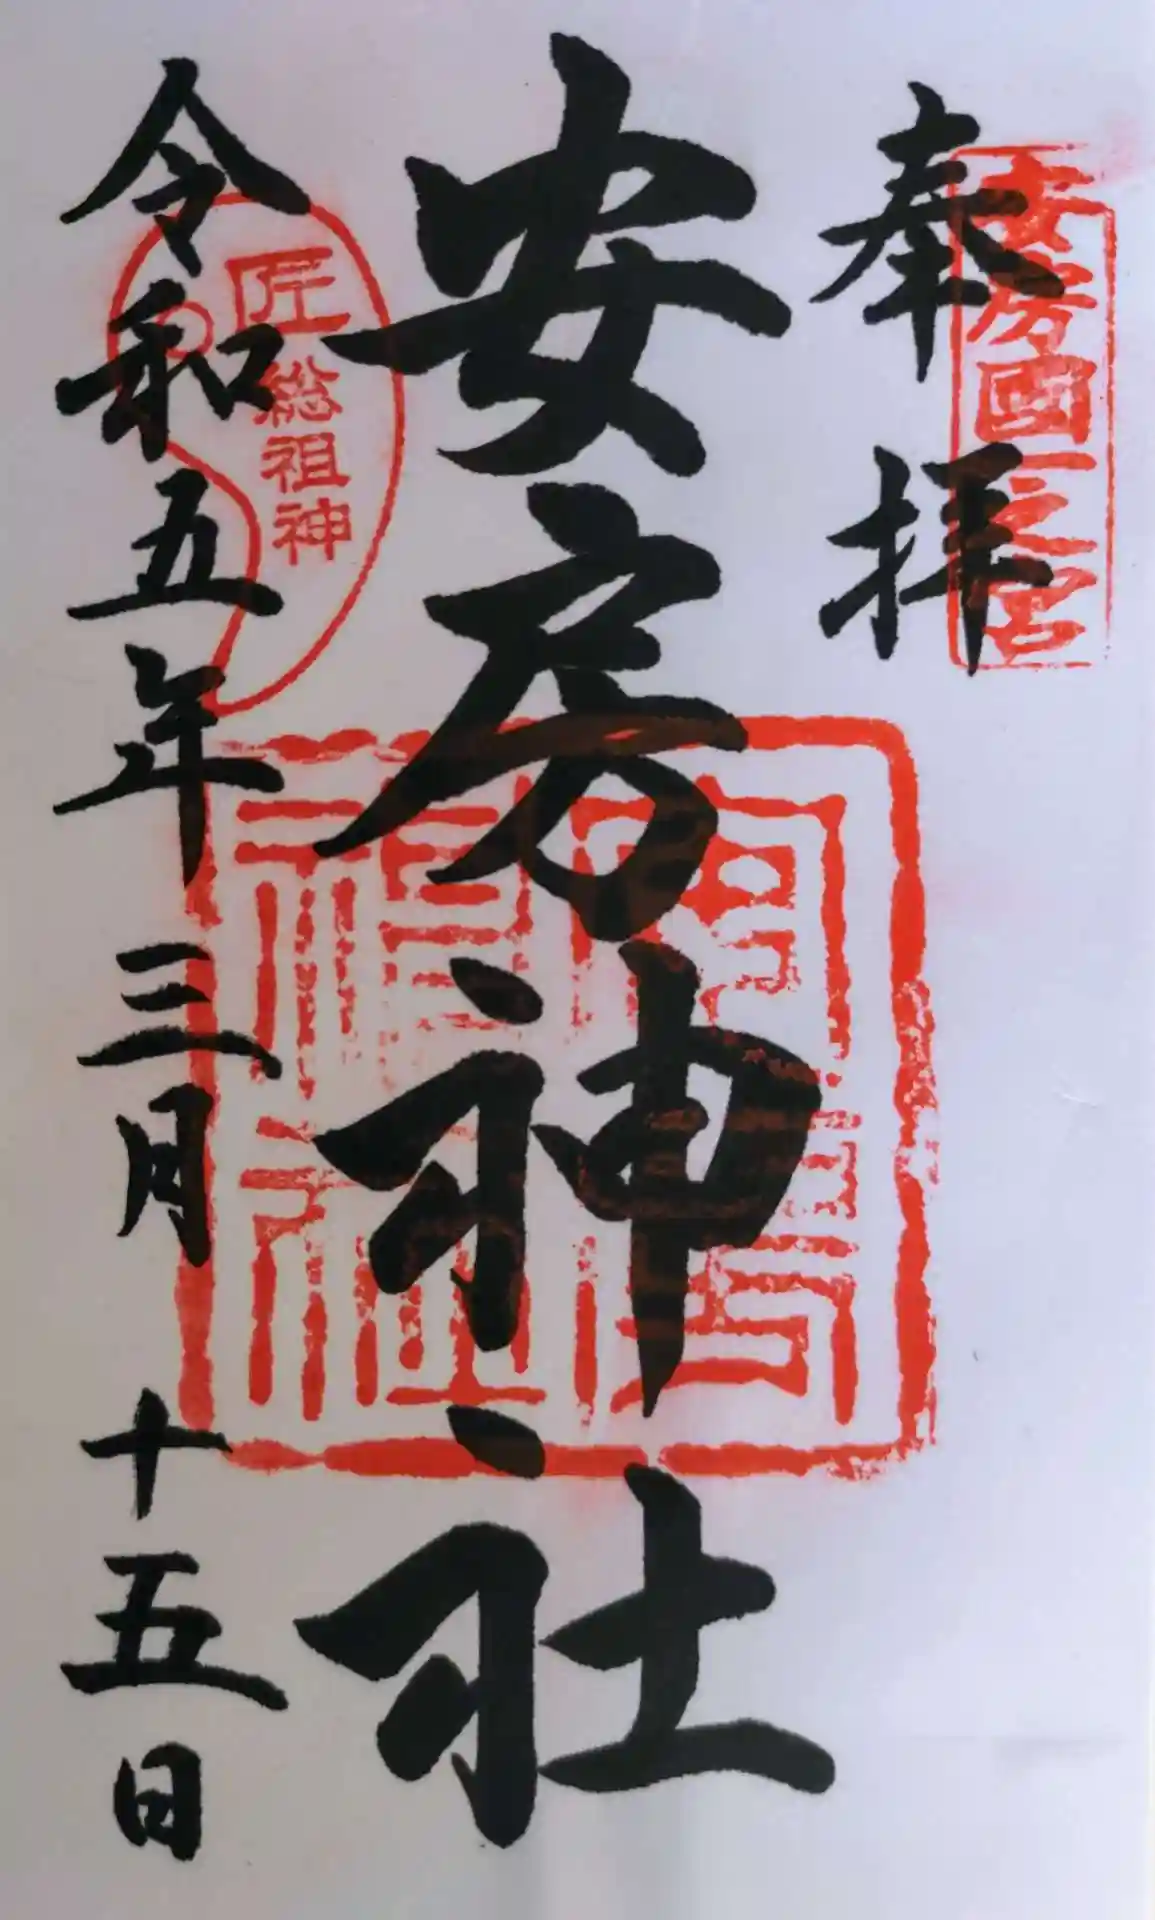 奉拝
安房國一之宮
安房神社
匠総祖神
令和五年三月十五日
安房神社